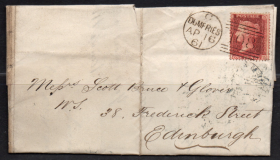 DUMFRIES
AP 16
61
Messrs Scott Bruce & Glover
W.S.
28. Frederick Street
Edinburgh